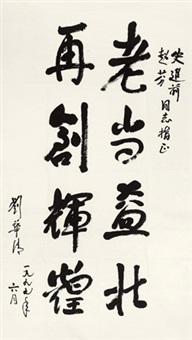 史進前
趙芳同志指正
老当益壮
再創輝煌
劉華清
一九九九年
六月